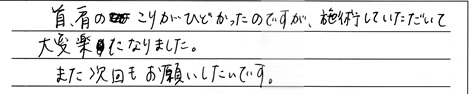 首、肩のこりがひどかったのですが、施術していただいて
大変楽になりました。
また次回もお願いしたいです。